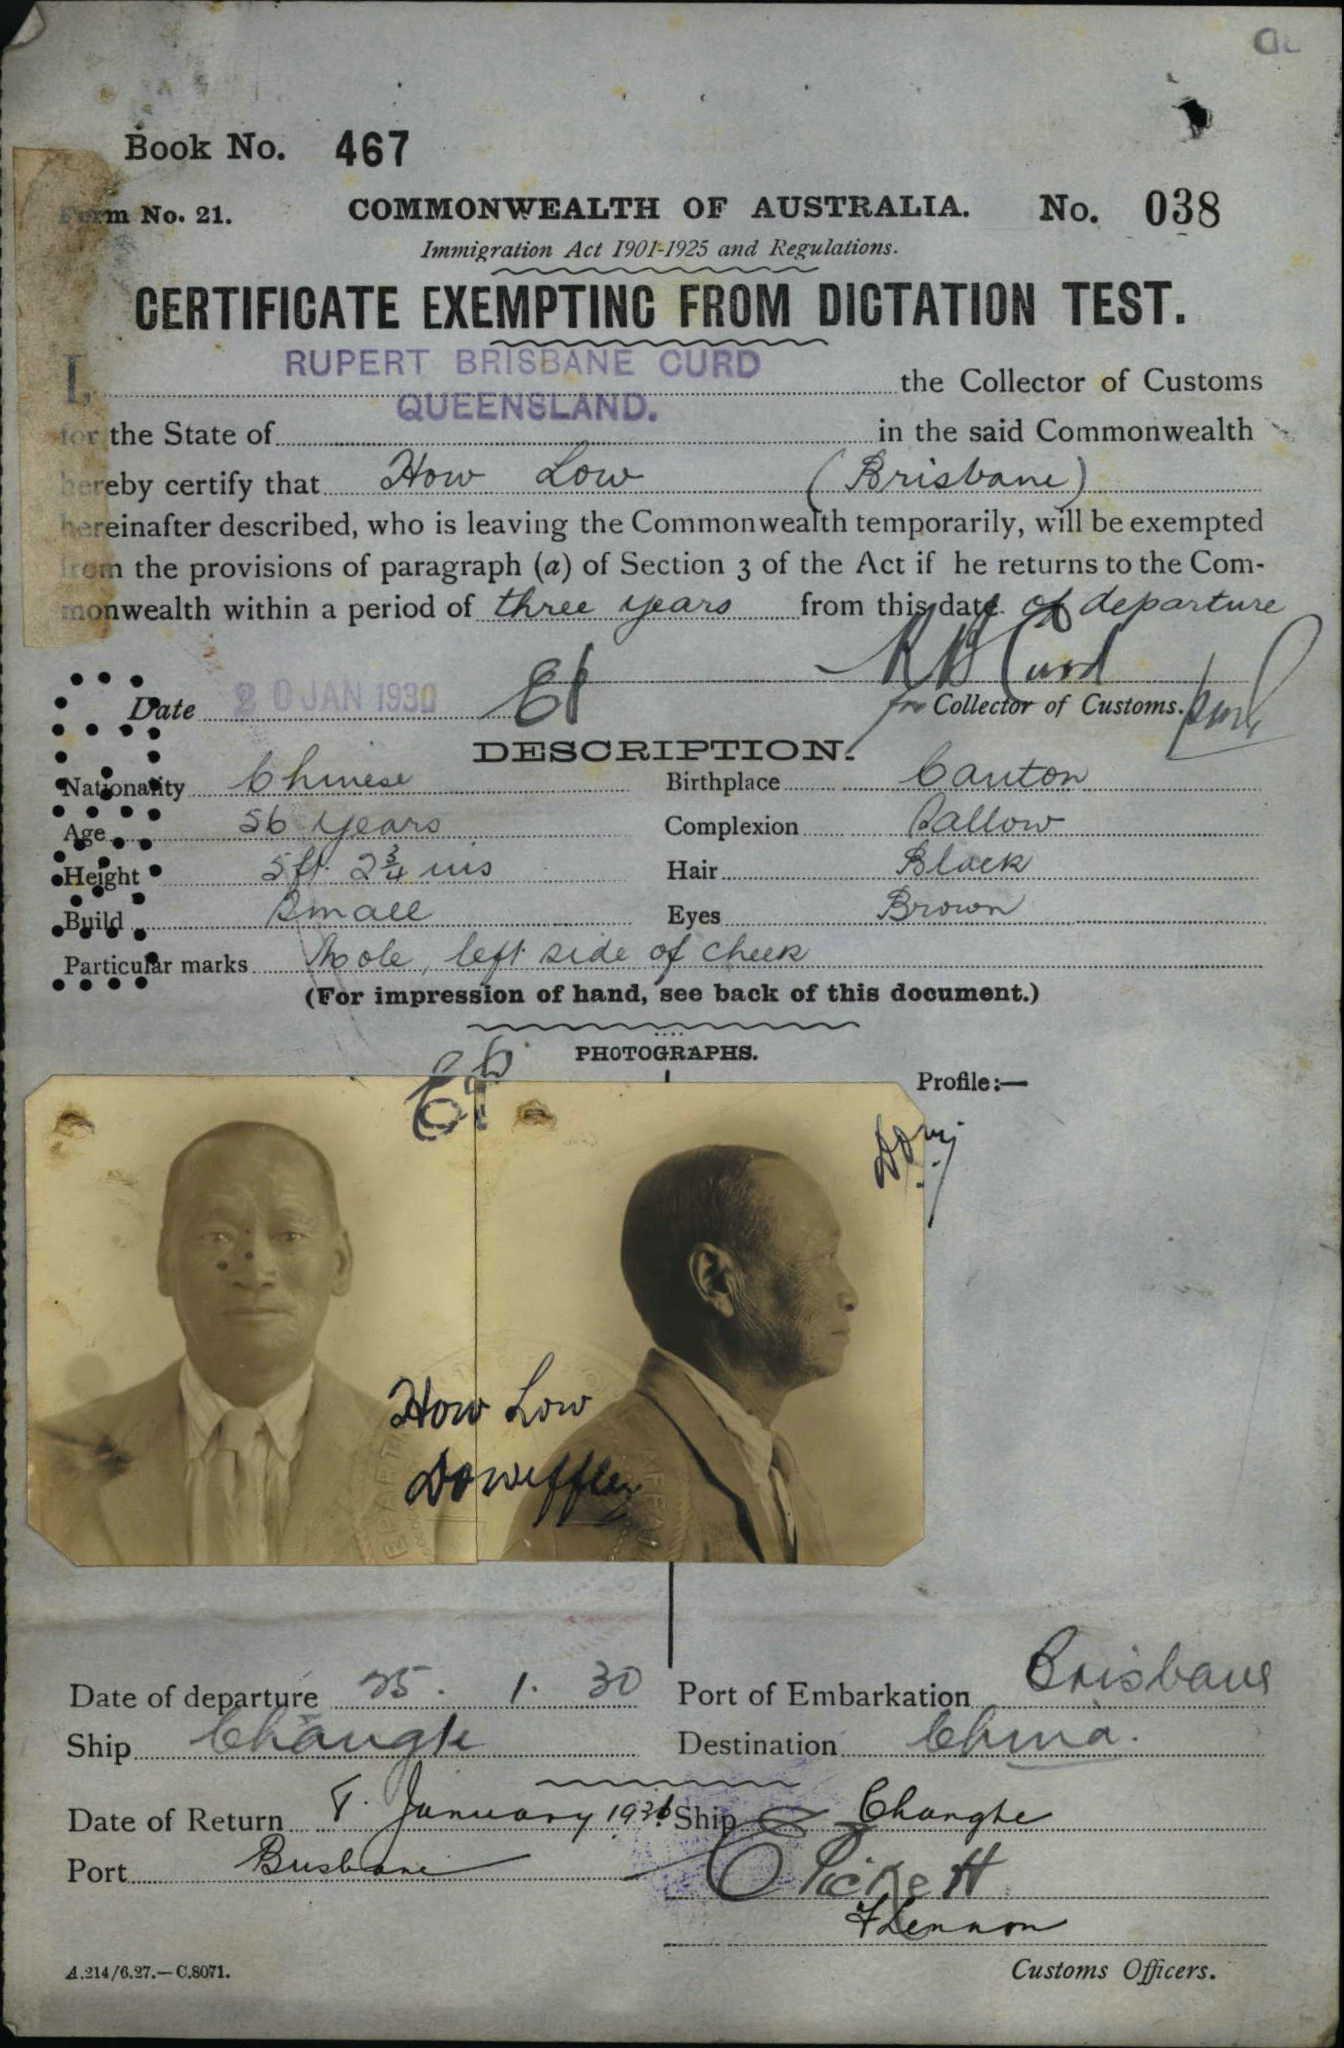 Book No. 467
Form No. 21. COMMONWEALTH OF AUSTRALIA. No. 038
Immigration Act 1901-1925 and Regulations.
CERTIFICATE EXEMPTING FROM DICTATION TEST.
I, RUPERT BRISBANE CURD the Collector of Customs
for the State of QUEENSLAND. in the said Commonwealth
hereby certify that How Low (Brisbane)
hereinafter described, who is leaving the Commonwealth temporarily, will be exempted
from the provisions of paragraph (a) of Section 3 of the Act if he returns to the Com-
monwealth within a period of three years from this date of departure
R B Curd
Date 20 JAN 1930 for Collector of Customs.
DESCRIPTION.
Nationality Chinese Birthplace Canton
Age 56 years Complexion Sallow
Height 5 ft. 2 3/4 ins Hair Black
Build Small Eyes Brown
Particular marks Mole, left side of cheek
(For impression of hand, see back of this document.)
PHOTOGRAPHS.
Profile:—
How Low
Date of departure 25. 1. 30 Port of Embarkation Brisbane
Ship Changte Destination China.
Date of Return 8. January 1936 Ship Changte
Port Brisbane E Pickett
F Lennon
A.214/6.27.—C.8071. Customs Officers.